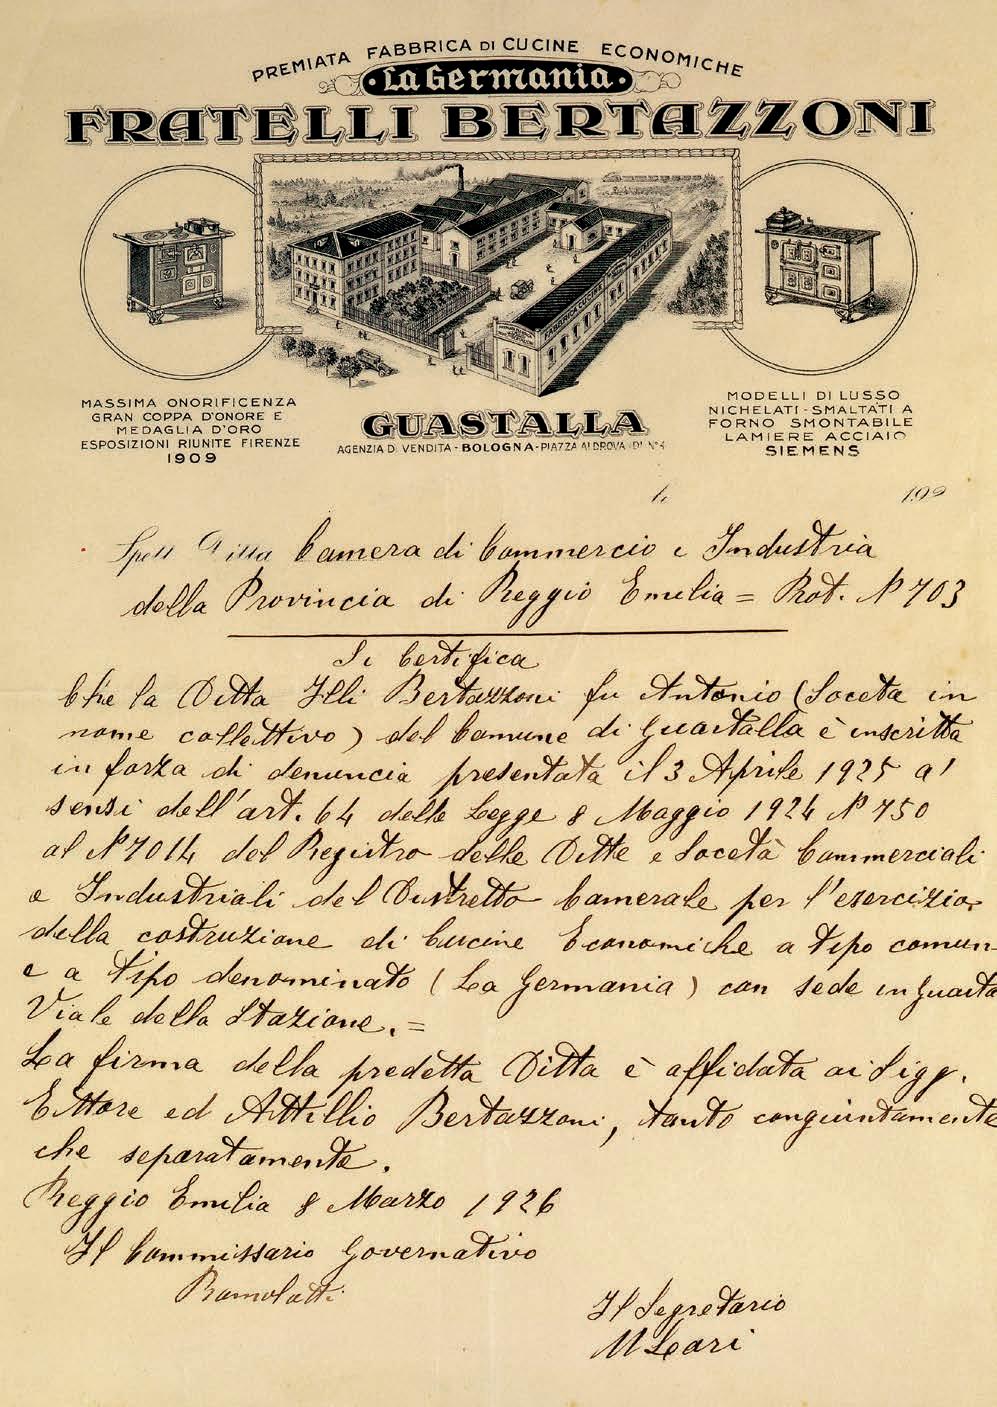 PREMIATA FABBRICA DI CUCINE ECONOMICHE
La Germania
FRATELLI BERTAZZONI
MASSIMA ONORIFICENZA
GRAN COPPA D'ONORE E
MEDAGLIA D'ORO
ESPOSIZIONI RIUNITE FIRENZE
1909
GUASTALLA
AGENZIA DI VENDITA - BOLOGNA - PIAZZA ALDROVANDI N°
MODELLI DI LUSSO
NICHELATI - SMALTATI A
FORNO SMONTABILE
LAMIERE ACCIAIO
SIEMENS
li 19
Spett Ditta Camera di Commercio e Industria
della Provincia di Reggio Emilia = Prot. N° 703
Si Certifica
Che la Ditta Flli Bertazzoni fu Antonio (Soceta in
nome collettivo) del Comune di Guastalla è inscritta
in forza di denuncia presentata il 3 Aprile 1925 a'
sensi dell'art. 64 delle Legge 8 Maggio 1924 N° 750
al N° 7014 del Registro delle Ditte e Società Commerciali
e Industriali del Distretto Camerale per l'esercizio
della costruzione di Cucine Economiche a tipo comun-
e a tipo denominato (La Germania) con sede in Guasta
Viale della Stazione. =
La firma della predetta Ditta è affidata ai Sigg.
Ettore ed Attillio Bertazzoni, tanto congiuntamente
che separatamente.
Reggio Emilia 8 Marzo 1926
Il Commissario Governativo
Il Segretario